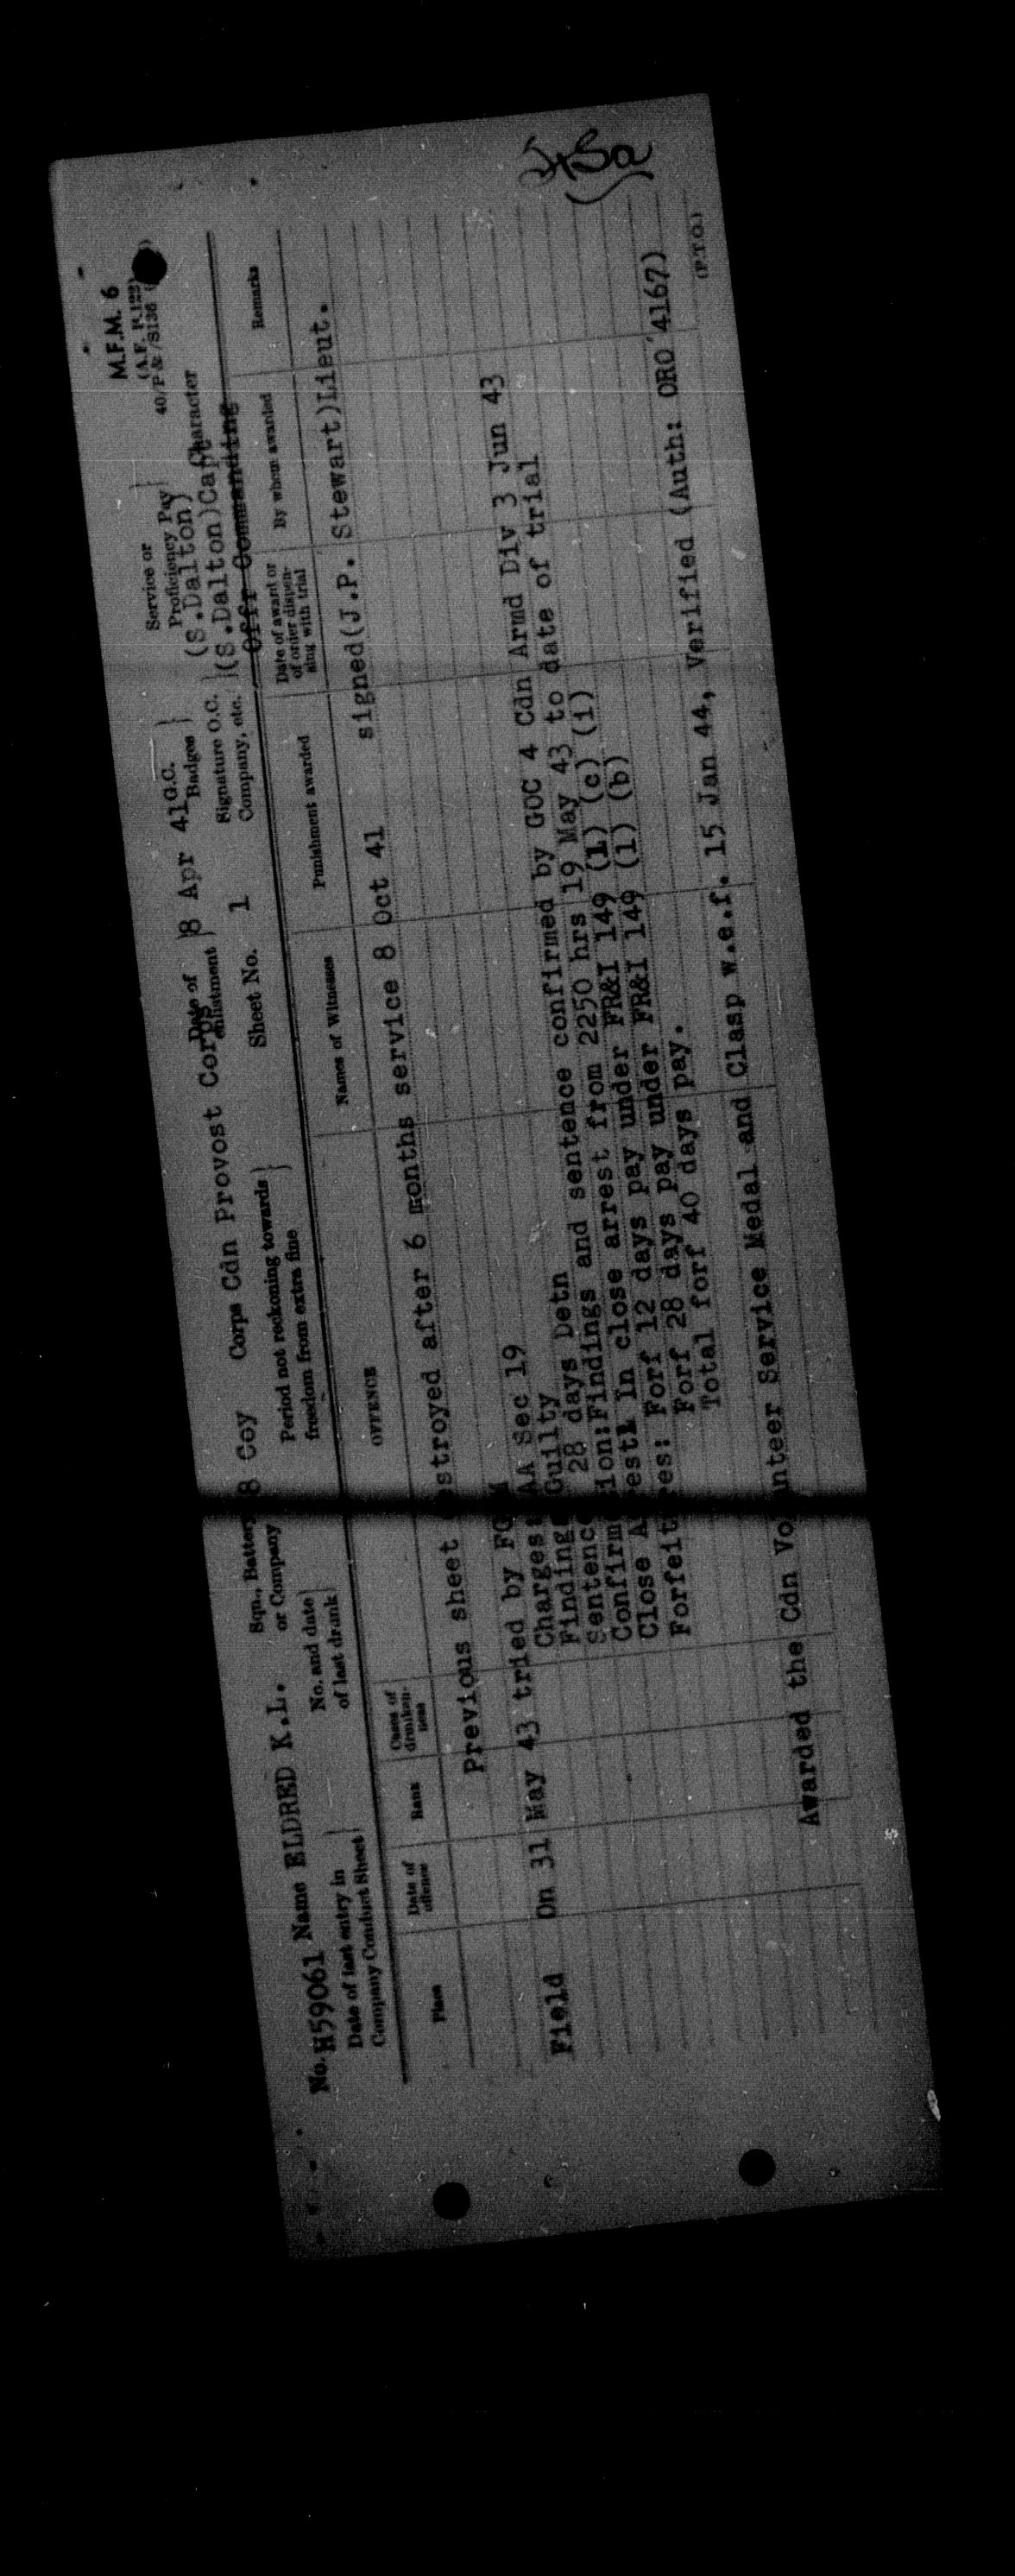 M.F.M. 6
(A.F. B.122)
40/P & /S136
No. H59061 Name ELDRED K.L. Sqn., Battery or Company 8 Coy Corps Cdn Provost Corps Date of enlistment 8 Apr 41 G.C. Badges Service or Proficiency Pay
Date of last entry in Company Conduct Sheet No. and date of last drunk Period not reckoning towards freedom from extra fine Sheet No. 1 Signature O.C. Company, etc. (S.Dalton) Character
(S.Dalton)Capt
Offr Commanding
Place Date of offence Rank Cases of drunkenness OFFENCE Names of Witnesses Punishment awarded Date of award or of order dispensing with trial By whom awarded Remarks
Previous sheet stroyed after 6 months service 8 Oct 41 signed(J.P. Stewart)Lieut.
Field On 31 May 43 tried by
Charges: AA Sec 19
Finding Guilty
Sentence 28 days Detn
Confirm tion:Findings and sentence confirmed by GOC 4 Cdn Armd Div 3 Jun 43
Close A est: In close arrest from 2250 hrs 19 May 43 to date of trial
Forfeit es: Forf 12 days pay under FR&I 149 (1) (c) (i)
Forf 28 days pay under FR&I 149 (1) (b)
Total forf 40 days pay.
Awarded the Cdn Vo nteer Service Medal and Clasp w.e.f. 15 Jan 44, Verified (Auth: ORO 4167)
(P.T.O.)